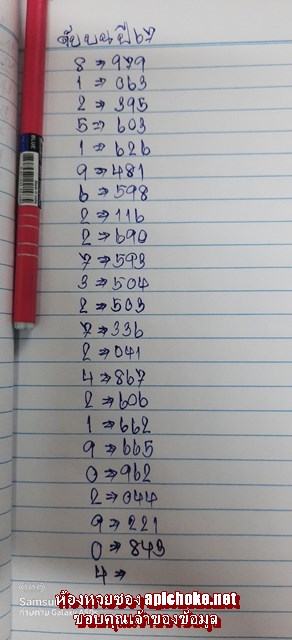 ดับบนปี67
8 ⇒ 979
1 ⇒ 063
2 ⇒ 395
5 ⇒ 603
1 ⇒ 626
9 ⇒ 481
6 ⇒ 598
2 ⇒ 116
2 ⇒ 690
7 ⇒ 593
3 ⇒ 504
2 ⇒ 503
7 ⇒ 336
2 ⇒ 041
4 ⇒ 867
2 ⇒ 606
1 ⇒ 662
9 ⇒ 665
0 ⇒ 962
2 ⇒ 044
9 ⇒ 221
0 ⇒ 843
4 ⇒
ห้องหวยซอง apichoke.net
ขอบคุณเจ้าของข้อมูล